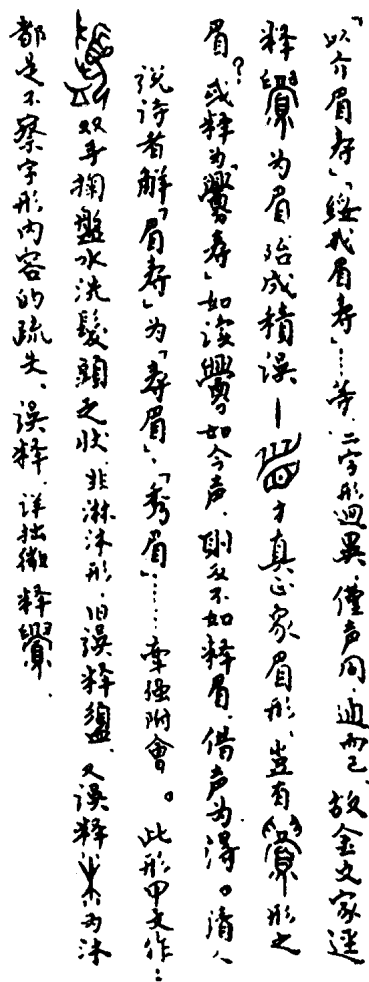 「以介眉寿」「綏我眉寿」……等，二字形迥異，僅声同、通而已。故金文家迳
釋 为眉，殆成積誤— 才真正象眉形，豈有 形之
眉？或釋为「釁寿」如讀釁如今声，則反不如釋眉，借声为得。清人
说诗者解「眉寿」为「寿眉」、「秀眉」……牽强附會。此形甲文作：
双手掬盤水洗髮頭之状，非淋沐形，旧誤釋盥、又誤釋 为沐
都是不察字形内容的疏失、誤釋，详拙徵釋